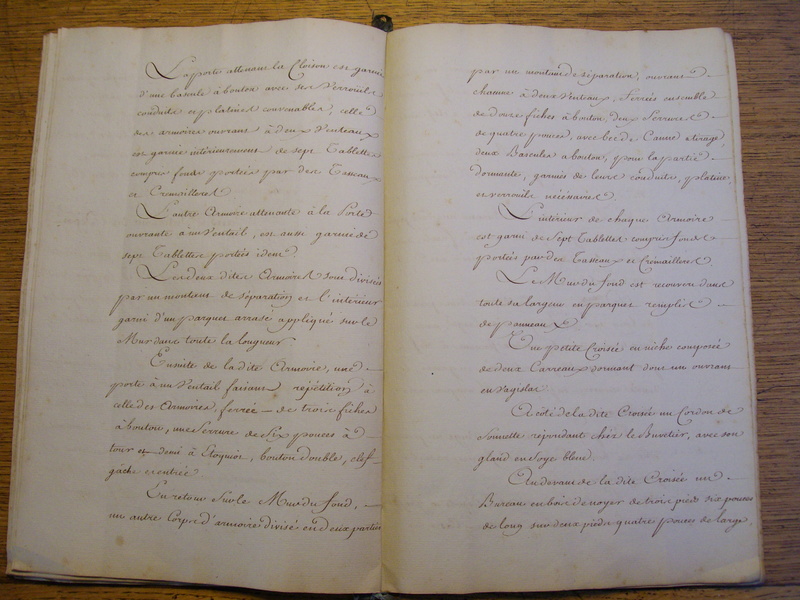 La porte attenans la Cloison est garnie
d'une bascule à bouton avec ses Verrouils
conduits et platines convenables, celle
des armoires ouvrans à deux Venteaux
est garnie intérieurement de sept Tablettes
compris fonds portées par des Tasseaux
et Cremailleres
L'autre Armoire attenante à la Porte
ouvrante à un Ventail, est aussi garnie de
sept Tablettes portées idem.
Les deux dites Armoires sont divisées
par un montant de séparation et l'intérieur
garni d'un parquet arrasé appliqué sur le
Mur dans toute la longueur
Ensuite de la dite Armoire, une
porte à un Ventail faisant répétition à
celle des Armoires, ferrée de trois fiches
à bouton, une Serrure de Six pouces à
tour et demi à bouton double, clef
gâche et entrée
En retour Sur le Mur du fond,
un autre Corps d'armoire divisé en deux parties
par un montant de séparation, ouvrans
chacune à deux Venteaux, ferrées ensemble
de douze fiches à bouton, deux Serrures
de quatre pouces, avec bec de Canne à tirage,
deux Bascules à bouton, pour la partie
dormante, garnies de leurs conduits, platines,
et verrouils nécessaires.
L'intérieur de chaque Armoire
est garni de Sept Tablettes compris fonds
portées par des Tasseaux et Crémailleres
Le Mur du fond est recouvert dans
toute sa largeur en parquet remplis
de panneaux
Une petite Croisée en niche composée
de deux Carreaux dormant dont un ouvrant
en Vagistas.
A côté de la dite Croisée un Cordon de
Sonnette répondant chés le Buvetier, avec son
gland en Soye bleue.
Au devant de la dite Croisée un
Bureau en bois de noyer de trois pieds six pouces
de long sur deux pieds quatre pouces de large,